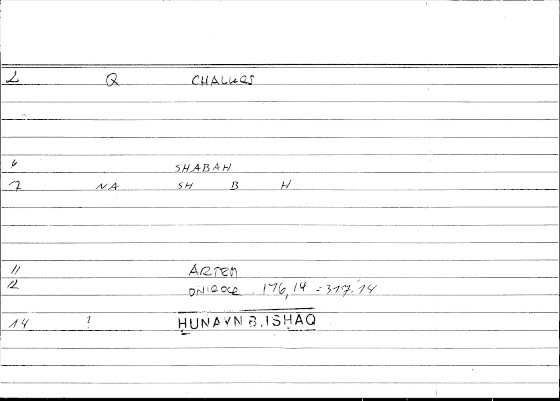 2 Q CHALKOS
6 SHABAH
7 NA SH B H
11 ARTEM
12 176,14 = 317.14
14 ? HUNAYN B. ISHAQ